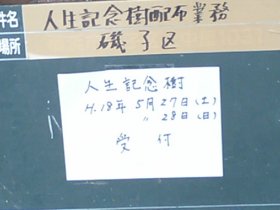 件名 人生記念樹配布業務
場所 磯子区
人生記念樹
H.18年 5月27日(土)
〃 28日(日)
受付